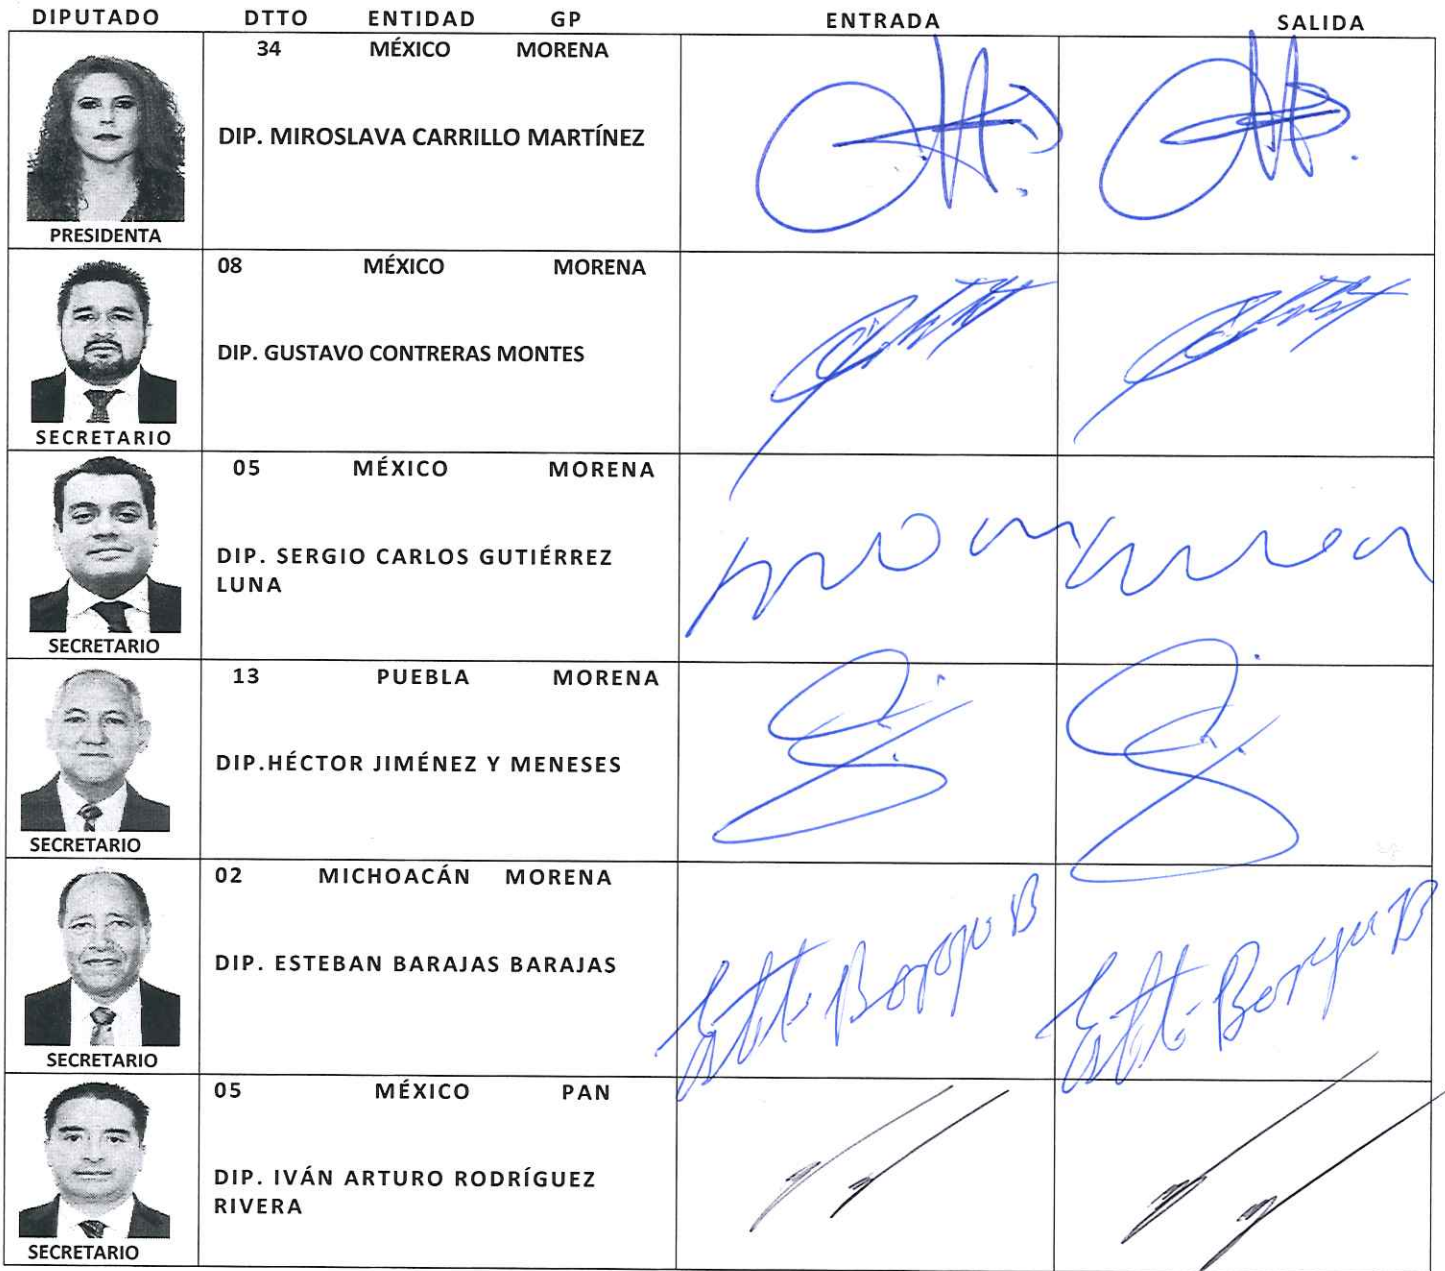 DIPUTADO DTTO ENTIDAD GP ENTRADA SALIDA
34 MÉXICO MORENA
DIP. MIROSLAVA CARRILLO MARTÍNEZ
PRESIDENTA
08 MÉXICO MORENA
DIP. GUSTAVO CONTRERAS MONTES
SECRETARIO
05 MÉXICO MORENA
DIP. SERGIO CARLOS GUTIÉRREZ
LUNA
SECRETARIO
13 PUEBLA MORENA
DIP.HÉCTOR JIMÉNEZ Y MENESES
SECRETARIO
02 MICHOACÁN MORENA
DIP. ESTEBAN BARAJAS BARAJAS
SECRETARIO
05 MÉXICO PAN
DIP. IVÁN ARTURO RODRÍGUEZ
RIVERA
SECRETARIO